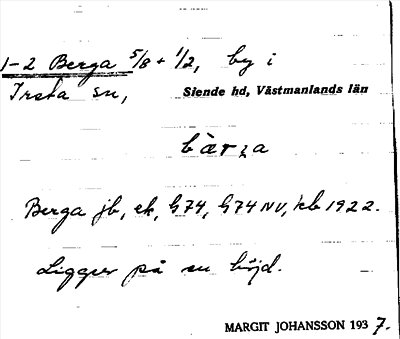 1-2 Berga 5/8 + 1/2, by i
Irsta sn, Siende hd, Västmanlands län
bärʒa
Berga jb, ek, G74, G74 NV, kb 1922.
Ligger på en höjd.
MARGIT JOHANSSON 1937.